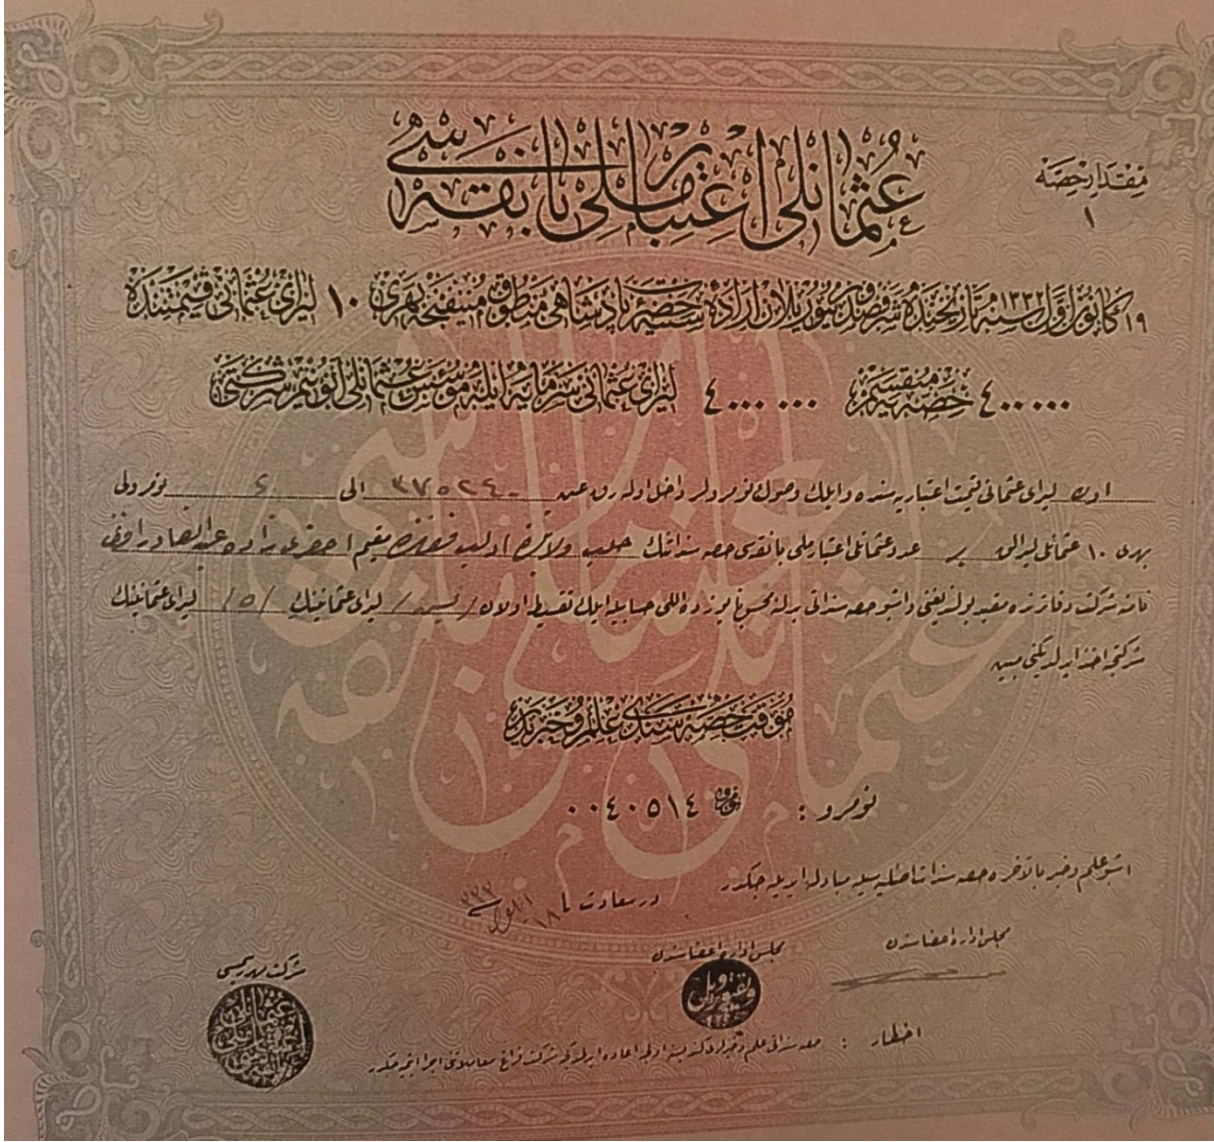 عثمانلی اعتبار ملی بانقه‌سی
مقدار حصه
١
١٩ كانون اول سنه ١٣٣٢ تاریخنده شرفصدور بیوریلان اراده سنیه حضرت پادشاهی منطوق منیفنجه بهری ١٠ لیرای عثمانی قیمتنده
٤٠٠٠٠٠ حصه‌یه منقسم ٤٠٠٠٠٠٠ لیرای عثمانی سرمایه ایله مؤسس عثمانلی آنونیم شركتی
اون لیرای عثمانی قیمت اعتباریه‌سنده و ایلك وصول نومرولر داخل اوله‌رق عن الی نومرولی
بهری ١٠ عثمانلی لیرالق بر عدد عثمانلی اعتبار ملی بانقه‌سی حصه سنداتنك حلب ولایتی ادلب مقیم زاده عبدالقادر افندی
نامنه شركت دفاترنده مقید بولندیغنی و اشبو حصه سنداتی بدلنه محسوباً یوزده اللی حسابیله ایلك تقسیط اولان لیرای عثمانینك /٥/ لیرای عثمانینك
شركتجه اخذ ایدلدیكنی مبین
موقت حصه سندی علم و خبریدر
نومرو : ٠٠٤٠٥١٤
اشبو علم و خبر بالآخره حصه سندات اصلیه‌سیله مبادله ایدیله‌جكدر
در سعادت فی ١٨ ایلول سنه ٣٣٣
مجلس اداره اعضاسندن
مجلس اداره اعضاسندن
شركت مهر رسمیسی
اخطار : حصه سنداتی علم و خبرلری كندیسنه اعاده ایدلمدكجه شركت فراغ معاملاتی اجرا ایتمیه‌جكدر